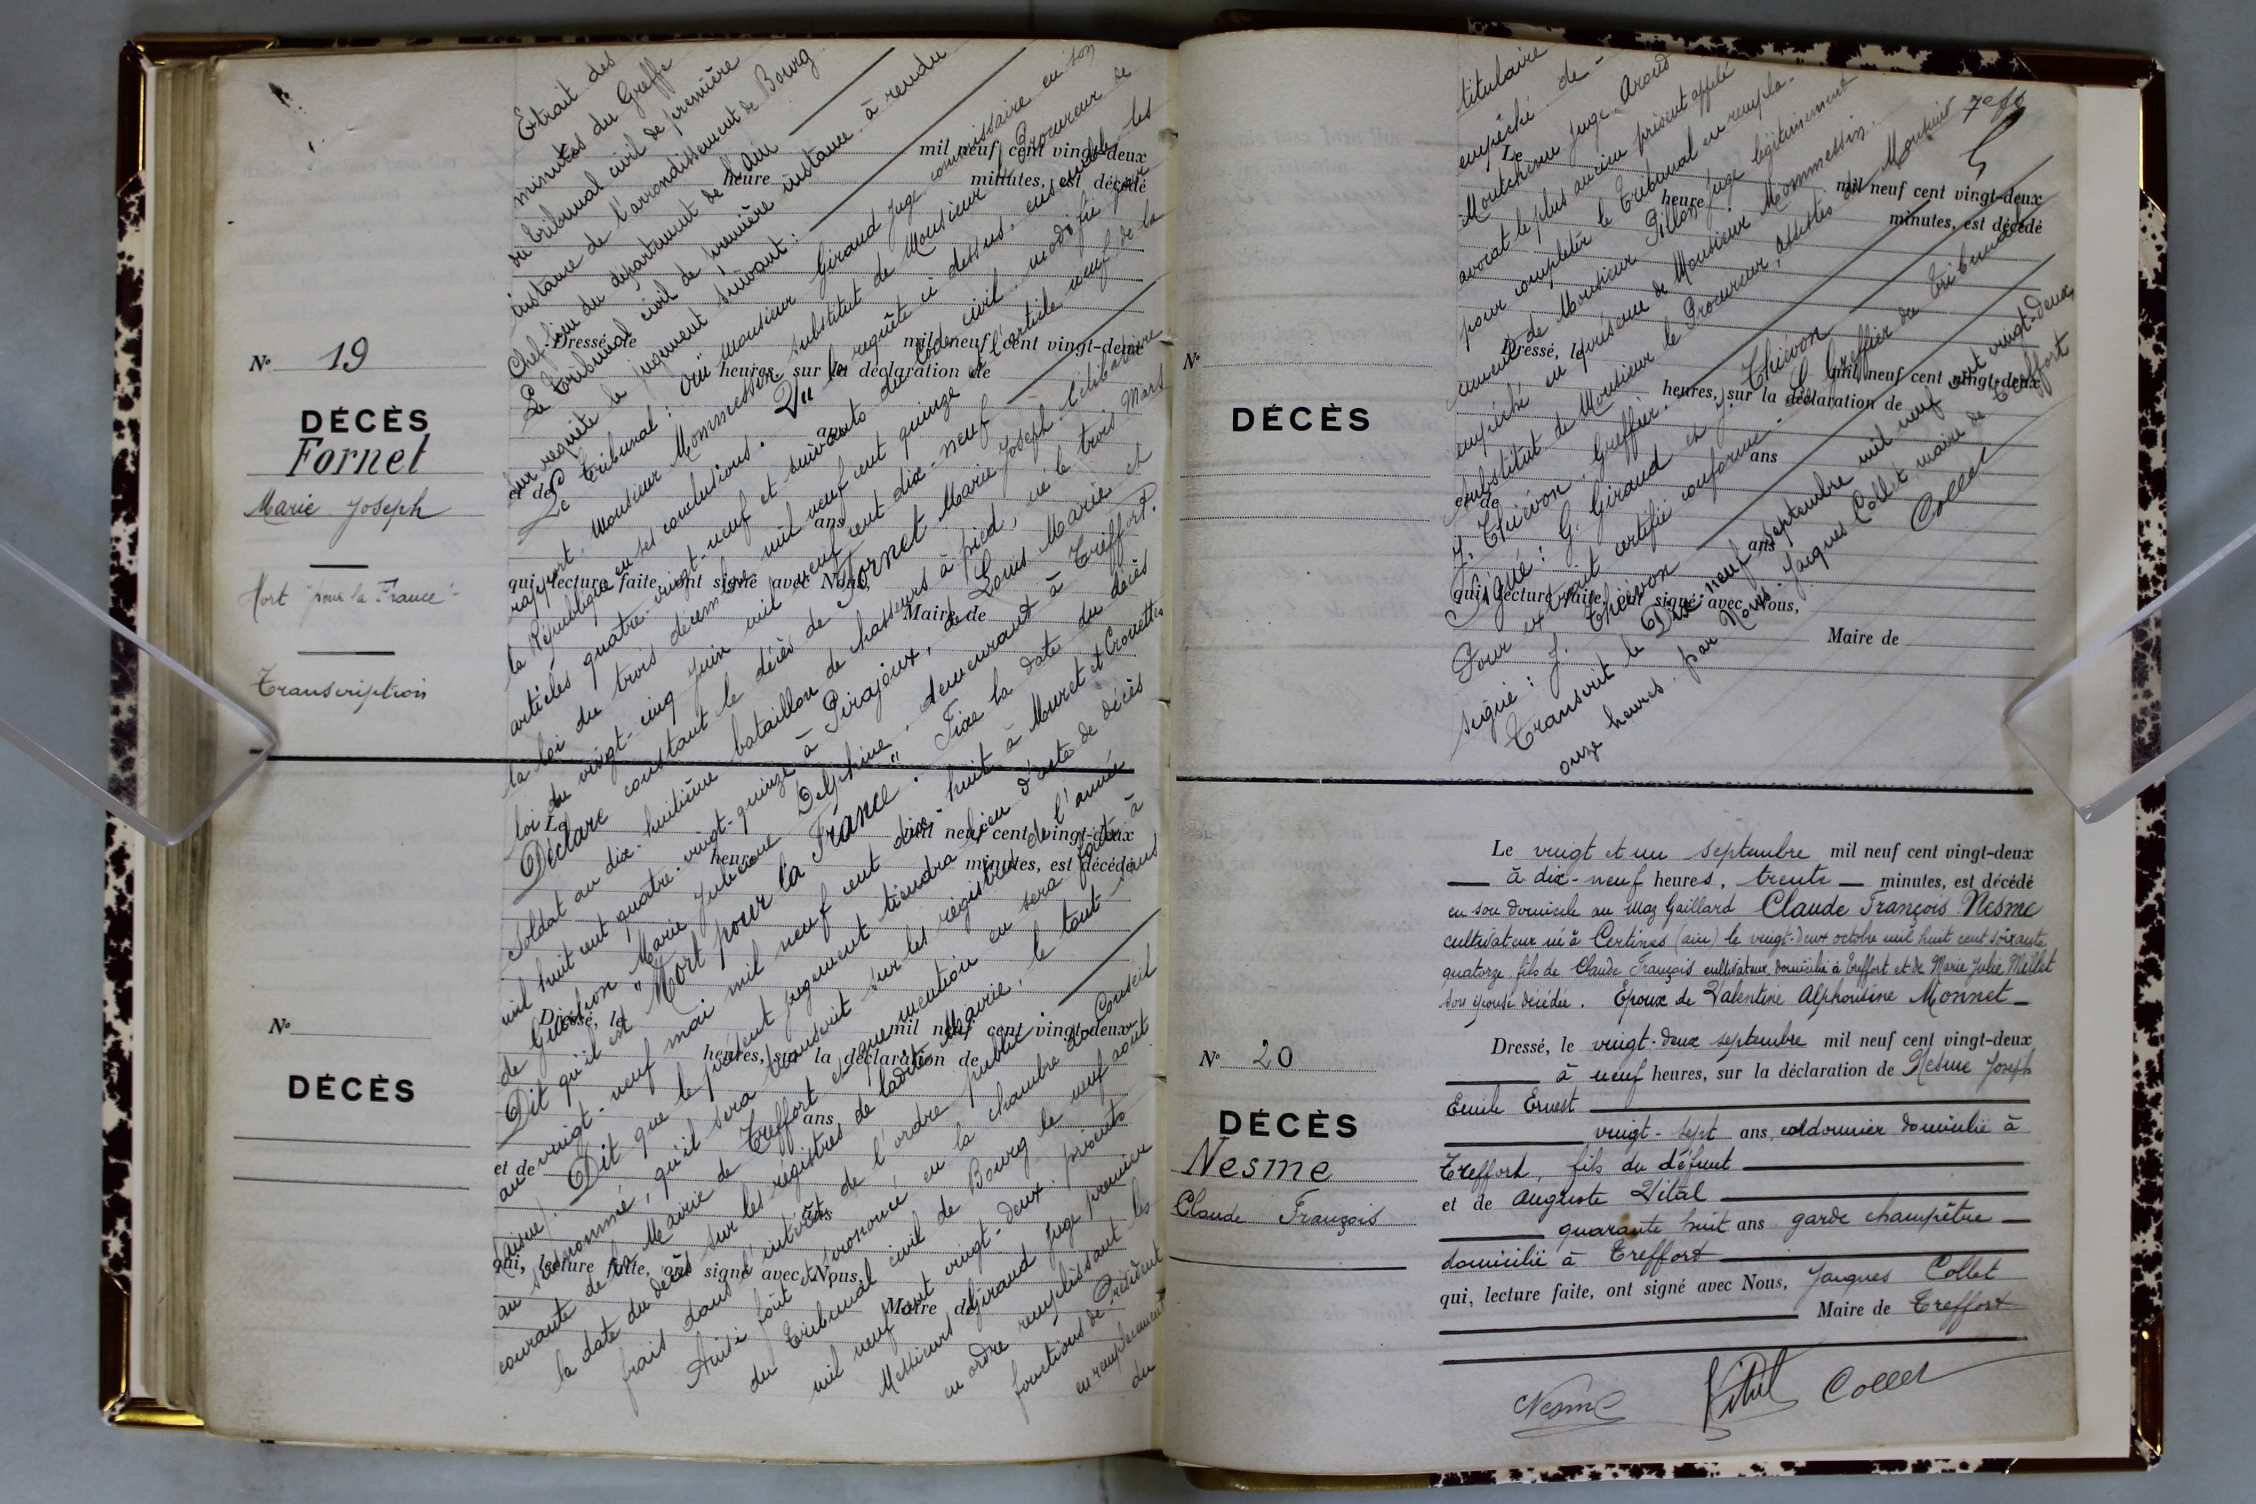 N° 19
DÉCÈS
Fornet
Marie Joseph
Mort "pour la France"
Transcription
Extrait des
minutes du Greffe
du Tribunal civil de première
instance de l'arrondissement de Bourg
Chef lieu du département de l'Ain
Le Tribunal civil de première instance, à rendu
sur requête le jugement suivant :
Le Tribunal : Ouï Monsieur Giraud Juge commissaire en son
rapport, Monsieur Mommessin substitut de Monsieur le Procureur de
la République en ses conclusions. Vu la requête ci dessus, ensemble les
articles quatre-vingt-neuf et suivants du Code civil modifié par
la loi du trois décembre mil neuf cent quinze et l'article neuf de la
loi du vingt-cinq juin mil neuf cent dix-neuf
Déclare constant le décès de Fornet Marie Joseph célibataire
Soldat au dix-huitième bataillon de chasseurs à pied, né le trois Mars
mil huit cent quatre-vingt-quinze à Pirajoux, de Louis Marie et
de Guichon Marie Delphine, demeurant à Treffort.
Dit qu'il est "Mort pour la France". Fixe la date du décès
au vingt-neuf mai mil neuf cent dix-huit à Muret et Crouettes
(aisne). Dit que le présent jugement tiendra lieu d'acte de décès
au susnommé, qu'il sera transcrit sur les registres de l'année
courante de la Mairie de Treffort et que mention en sera faite à
la date du décès sur les registres de ladite Mairie, le tout sans
frais dans l'intérêt de l'ordre public.
Ainsi fait et prononcé en la chambre du Conseil
du Tribunal civil de Bourg le neuf août
mil neuf cent vingt-deux présents
Messieurs Giraud Juge premier
en ordre remplissant les
fonctions de Président
en remplacement
du
Le mil neuf cent vingt-deux
heure minutes, est décédé
Dressé, le mil neuf cent vingt-deux
heures, sur la déclaration de
ans
et de
ans
qui, lecture faite, ont signé avec Nous,
Maire de
N°
DÉCÈS
Le mil neuf cent vingt-deux
heure minutes, est décédé
Dressé, le mil neuf cent vingt-deux
heures, sur la déclaration de
ans
et de
ans
qui, lecture faite, ont signé avec Nous,
Maire de
titulaire
empêché de
Moutchenu Juge Araud
avocat le plus ancien présent appelé
pour compléter le Tribunal en rempla-
cement de Monsieur Pillon Juge légitimement
empêché en présence de Monsieur Mommessin
substitut de Monsieur le Procureur, assistés de Monsieur
J. Thévon Greffier.
Signé : G. Giraud et J. Thévon
Pour extrait certifié conforme. Le Greffier du Tribunal
signé : J. Thévon
Transcrit le Dix-neuf septembre mil neuf cent vingt-deux,
onze heures, par Nous, Jacques Collet maire de Treffort
Collet
N°
DÉCÈS
Le mil neuf cent vingt-deux
heure minutes, est décédé
Dressé, le mil neuf cent vingt-deux
heures, sur la déclaration de
ans
et de
ans
qui, lecture faite, ont signé avec Nous,
Maire de
N° 20
DÉCÈS
Nesme
Claude François
Le vingt et un septembre mil neuf cent vingt-deux
à dix-neuf heures, trente minutes, est décédé
en son domicile au Maz Gaillard Claude François Nesme
cultivateur né à Certines (ain) le vingt-deux octobre mil huit cent soixante
quatorze fils de Claude François cultivateur domicilié à Treffort et de Marie Julie Meillet
son épouse décédée. Epoux de Valentine Alphonsine Monnet
Dressé, le vingt-deux septembre mil neuf cent vingt-deux
à neuf heures, sur la déclaration de Nesme Joseph
Emile Ernest
vingt-sept ans, cordonnier domicilié à
Treffort, fils du défunt
et de Auguste Vital
quarante huit ans garde champêtre
domicilié à Treffort
qui, lecture faite, ont signé avec Nous, Jacques Collet
Maire de Treffort
Nesme Vital Collet